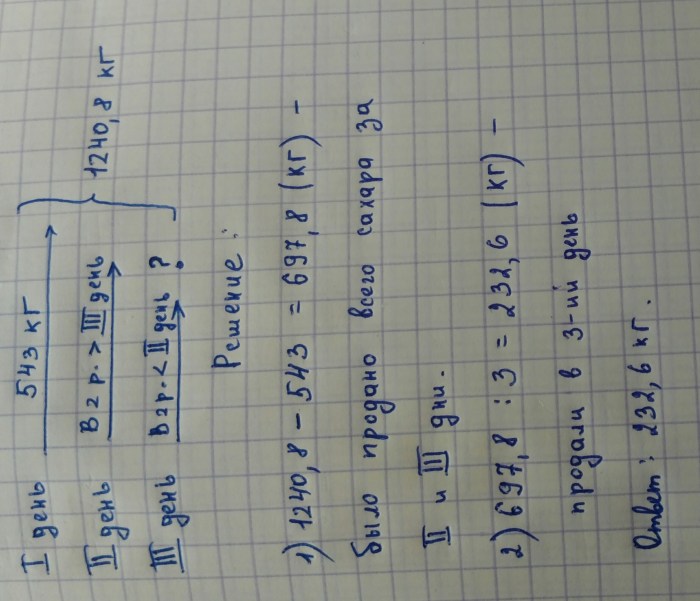 I день 543 кг
II день В 2 р. > III день
1240,8 кг
III день В 2 р. < II день ?
Решение:
1) 1240,8 - 543 = 697,8 (кг) -
было продано всего сахара за
II и III дни.
2) 697,8 : 3 = 232,6 (кг) -
продали в 3-ий день
Ответ: 232,6 кг.